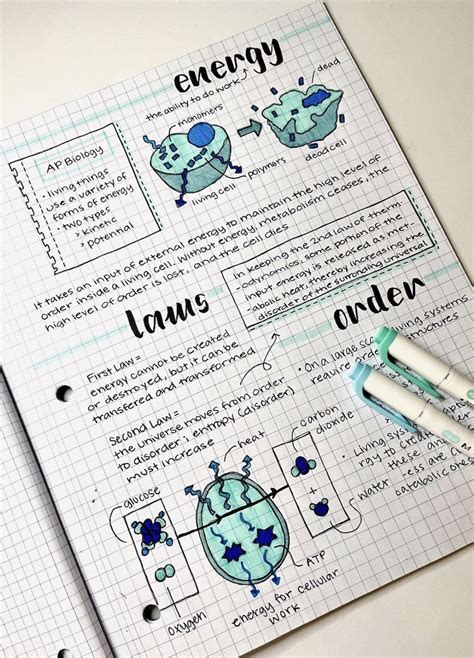 energy
the ability to do work
monomers
dead
polymers
living cell
dead cell
AP Biology
· living things
use a variety of
forms of energy
· two types
> kinetic
> potential
It takes an input of external energy to maintain the high level of
order inside a living cell. Without energy, metabolism ceases, the
high level of order is lost, and the cell dies
In keeping the 2nd law of therm-
-odynomics, some portion of the
input energy is released as met-
-abolic heat, thereby increasing the
disorder of the surrounding universal
laws
First Law =
energy cannot be created
or destroyed, but it can be
transfered and transformed
Second Law =
the universe moves from order
to disorder; entropy (disorder)
must increase
order
· On a large scale living systems
require order structures
· Living syste
rgy to creat
these and
less are
catabolic
glucose
oxygen
heat
carbon
dioxide
water
ATP
energy for cellular
work